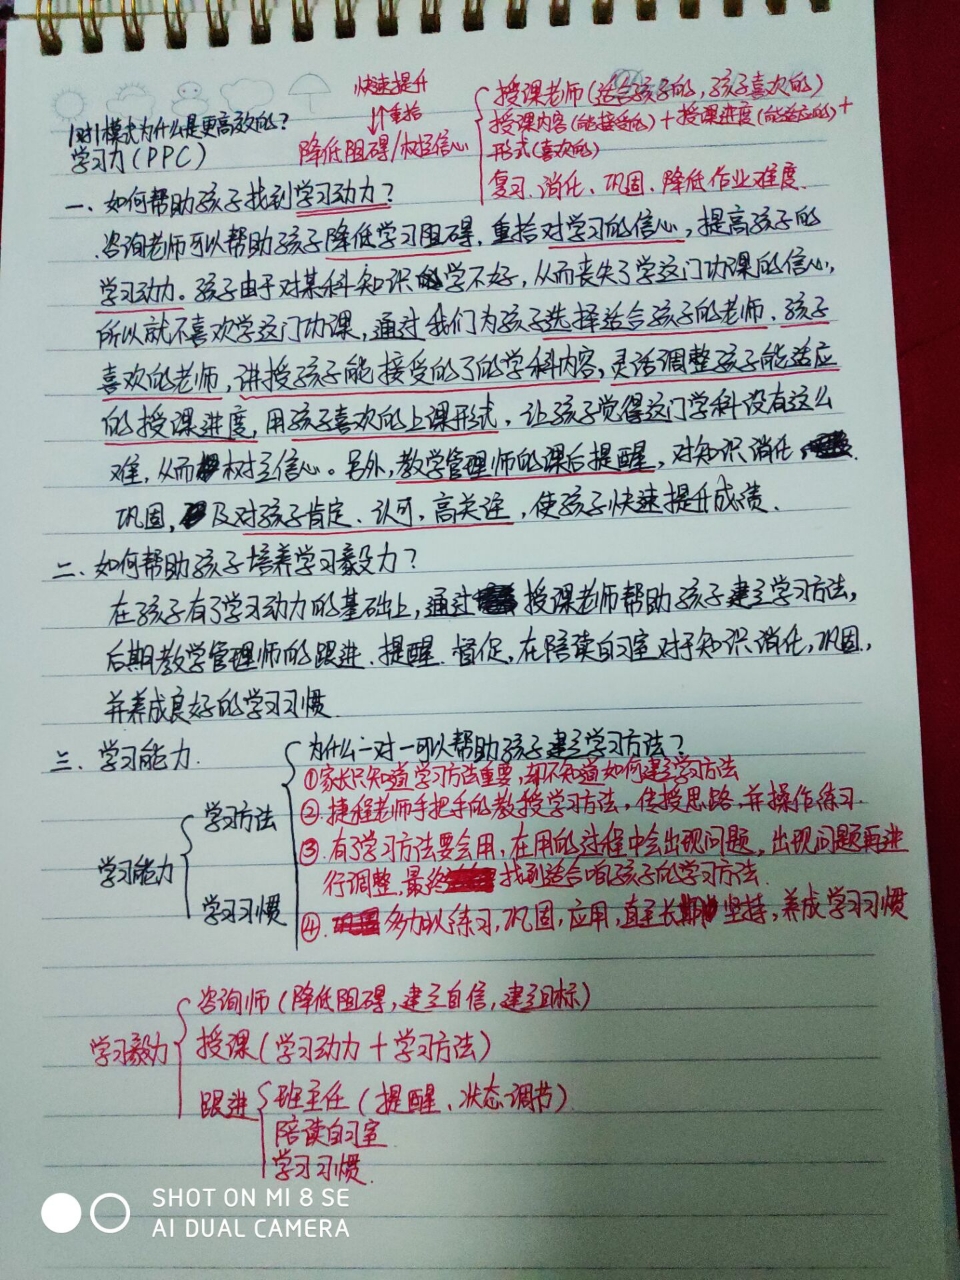 1对1模式为什么是更高效的?
学习力(PPC)
快速提升
重拾
降低阻碍/树立信心
授课老师(适合孩子的,孩子喜欢的)
授课内容(能接受的)+授课进度(能适应的)+
形式(喜欢的)
复习、消化、巩固、降低作业难度.
一、如何帮助孩子找到学习动力?
咨询老师可以帮助孩子降低学习阻碍,重拾对学习的信心,提高孩子的
学习动力。孩子由于对某科知识学不好,从而丧失了学这门功课的信心,
所以就不喜欢学这门功课,通过我们为孩子选择适合孩子的老师、孩子
喜欢的老师,讲授孩子能接受的了的学科内容,灵活调整孩子能适应
的授课进度,用孩子喜欢的上课形式,让孩子觉得这门学科没有这么
难,从而树立信心。另外,教学管理师的课后提醒,对知识消化,
巩固,及对孩子肯定、认可,高关注,使孩子快速提升成绩.
二、如何帮助孩子培养学习毅力?
在孩子有了学习动力的基础上,通过授课老师帮助孩子建立学习方法,
后期教学管理师的跟进、提醒、督促,在陪读自习室对于知识消化,巩固,
并养成良好的学习习惯.
三、学习能力.
学习能力
学习方法
学习习惯
为什么一对一可以帮助孩子建立学习方法?
①家长只知道学习方法重要,却不知道如何建立学习方法
②.捷程老师手把手的教授学习方法,传授思路,并操作练习.
③.有了学习方法要会用,在用的过程中会出现问题,出现问题再进
行调整,最终找到适合咱孩子的学习方法.
④.多加以练习,巩固,应用,直至长期坚持,养成学习习惯
学习毅力
咨询师(降低阻碍,建立自信,建立目标)
授课(学习动力+学习方法)
跟进
班主任(提醒、状态调节)
陪读自习室
学习习惯.
SHOT ON MI 8 SE
AI DUAL CAMERA